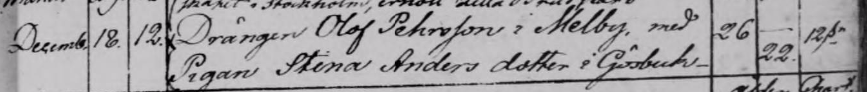 Stockholm,
Decemb. 18. 12. Drängen Olof Pehrsson i Melby, med 26 — 12 ſsn
Pigan Stena Anders dotter i Gösbuck— 22.